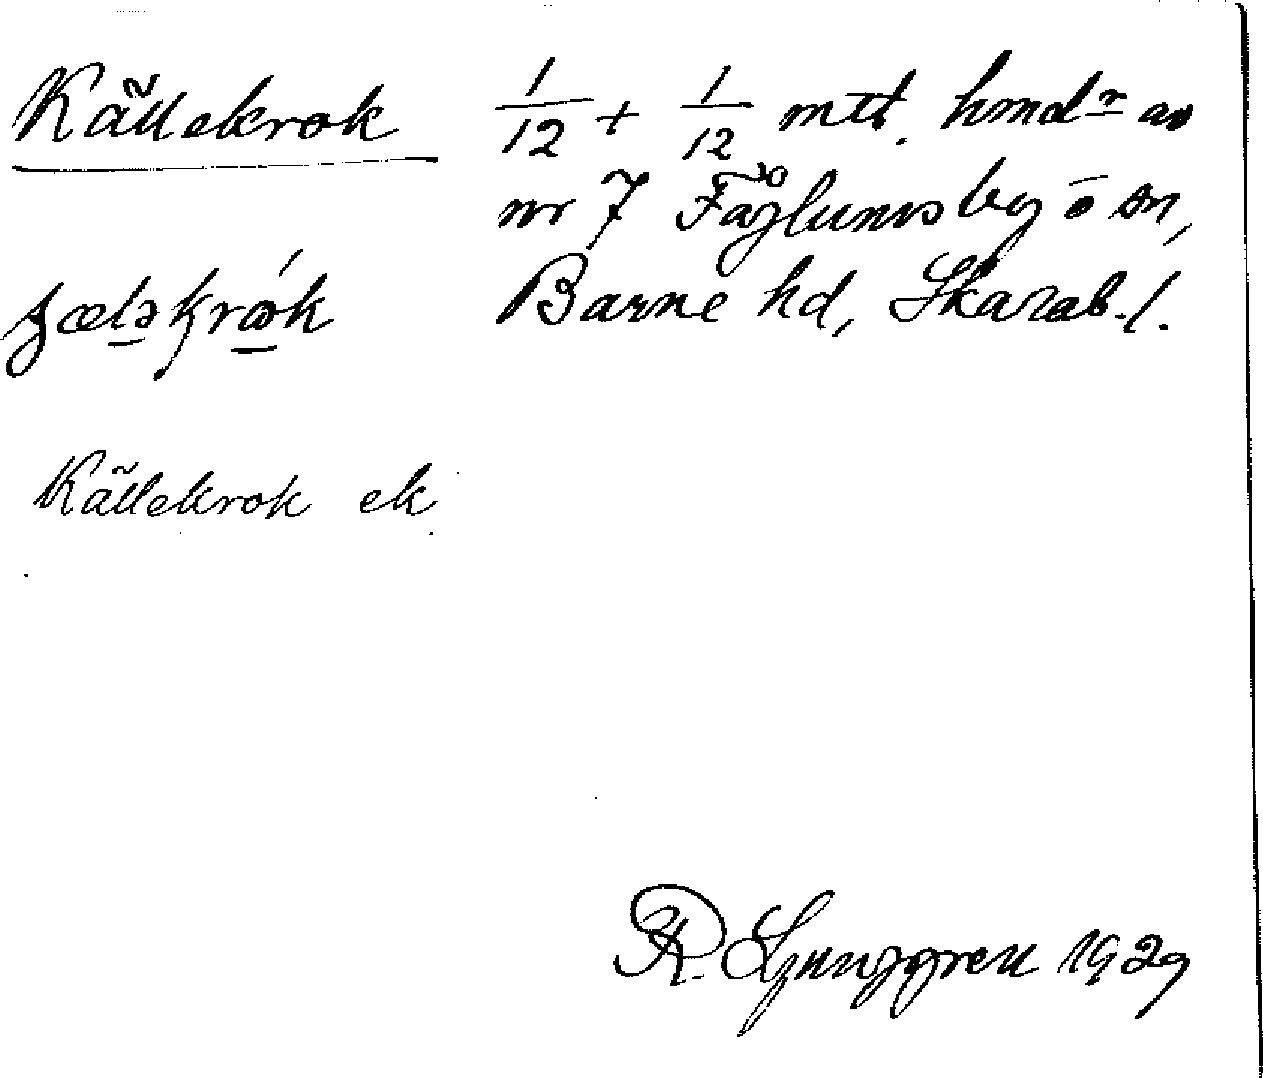 Källekrok
1/12 + 1/12 mtl. hmdr av
nr 7 Fåglums by o sn,
Barne hd, Skarab. l.
Källekrok ek
R. Ljunggren 1929